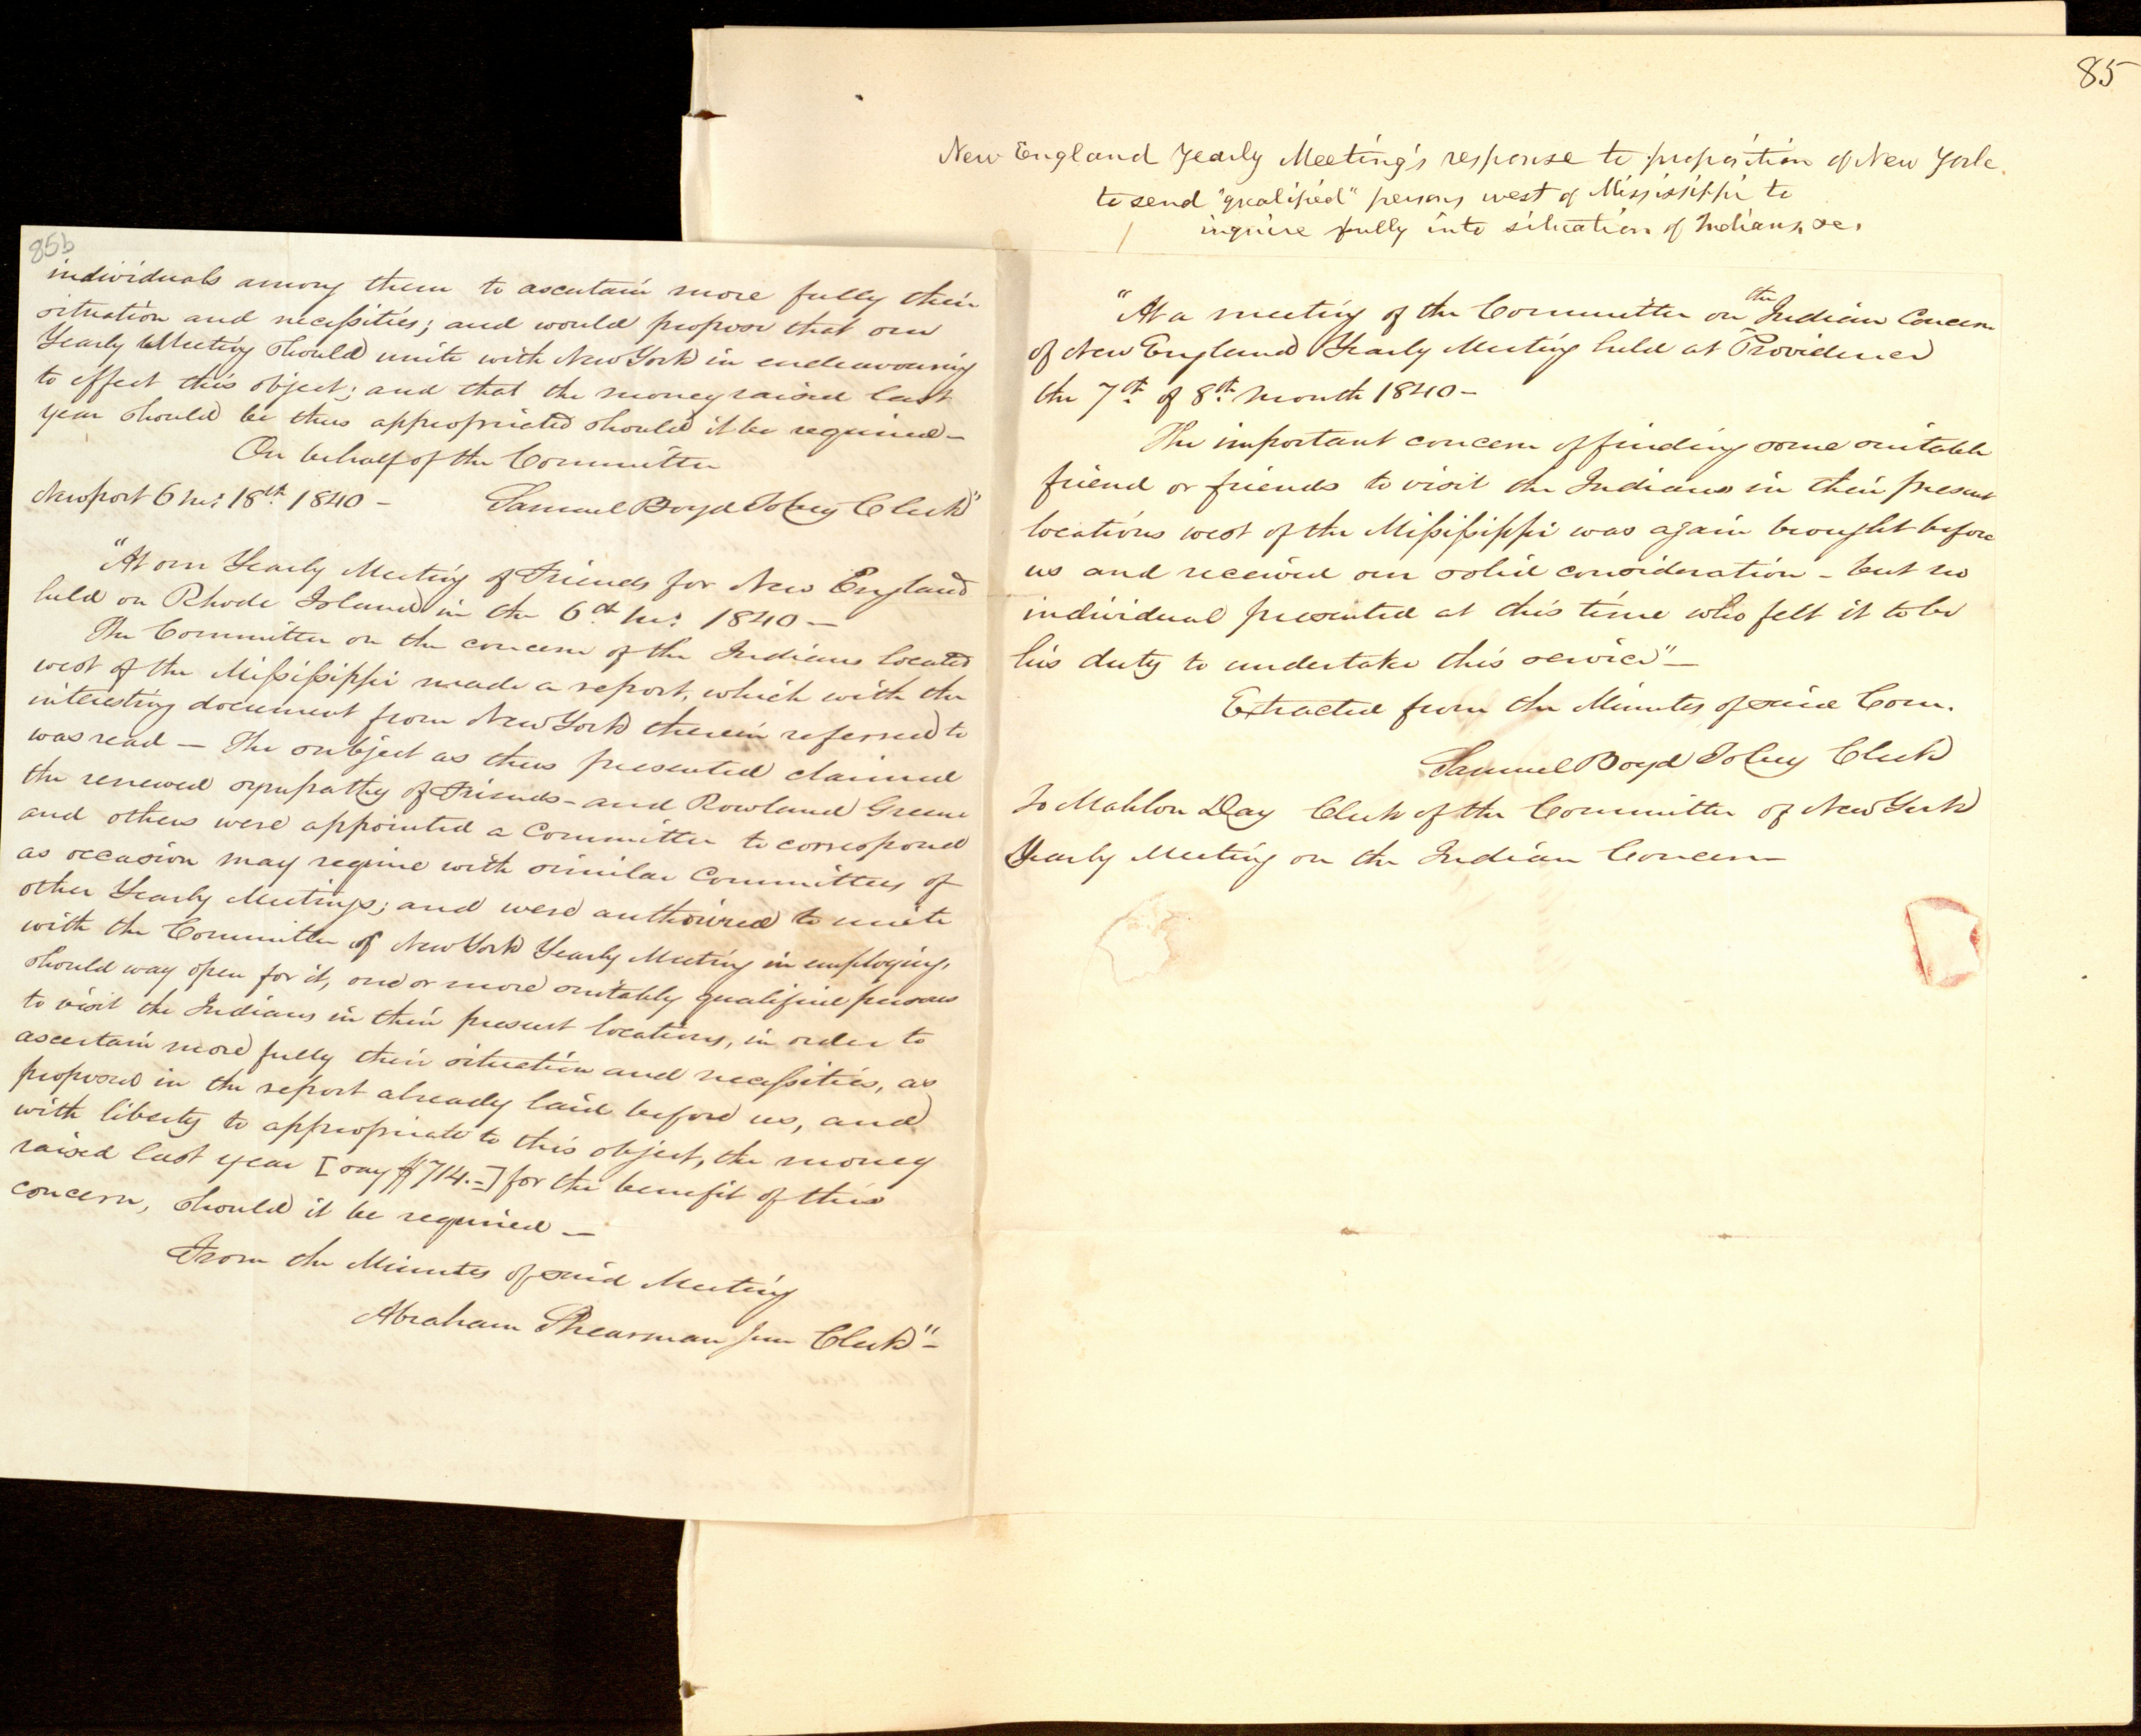 85
New England Yearly Meeting's response to proposition of New York
to send "qualified" persons west of Mississippi to
inquire fully into situation of Indians, &c.
85b
individuals among them to ascertain more fully their
situation and necessities; and would propose that our
Yearly Meeting should unite with New York in endeavouring
to effect this object; and that the money raised last
year should be thus appropriated should it be required—
On behalf of the Committee
Newport 6 mo: 18th. 1840 – Samuel Boyd Tobey Clerk"
"At our Yearly Meeting of Friends for New England
held on Rhode Island in the 6th. mo: 1840 —
The Committee on the concern of the Indians located
west of the Mississippi made a report, which with the
interesting document from New York therein referred to
was read — The subject as thus presented claimed
the renewed sympathy of Friends – and Rowland Greene
and others were appointed a Committee to correspond
as occasion may require with similar Committees of
other Yearly Meetings; and were authorized to unite
with the Committee of New York Yearly Meeting in employing,
should way open for it, one or more suitably qualified persons
to visit the Indians in their present locations, in order to
ascertain more fully their situation and necessities, as
proposed in the report already laid before us, and
with liberty to appropriate to this object, the money
raised last year [say $714.–] for the benefit of this
concern, should it be required —
From the Minutes of said Meeting
Abraham Shearman Jun Clerk" –
"At a meeting of the Committee on the Indian Concern
of New England Yearly Meeting held at Providence
the 7th. of 8th. month 1840 –
The important concern of finding some suitable
friend or friends to visit the Indians in their present
locations west of the Missisippi was again brought before
us and received our solid consideration – but no
individual presented at this time who felt it to be
his duty to undertake this service" —
Extracted from the Minutes of said Com.
Samuel Boyd Tobey Clerk
To Mahlon Day Clerk of the Committee of New York
Yearly Meeting on the Indian Concern—